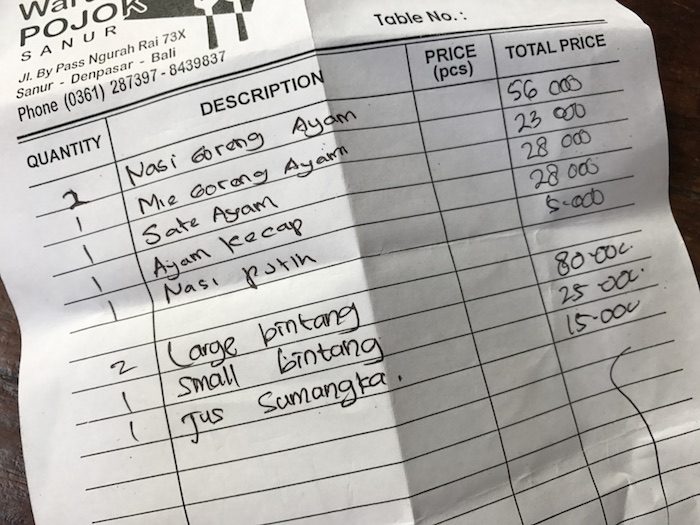 POJOK
SANUR
Jl. By Pass Ngurah Rai 73X
Sanur - Denpasar - Bali
Phone (0361) 287397 - 8439837
Table No. :
QUANTITY DESCRIPTION PRICE (pcs) TOTAL PRICE
2 Nasi Goreng Ayam 56 000
1 Mie Goreng Ayam 23 000
1 Sate Ayam 28 000
1 Ayam Kecap 28 000
1 Nasi putih 5.000
2 Large bintang 80.000
1 Small bintang 25.000
1 Jus Samangka. 15.000